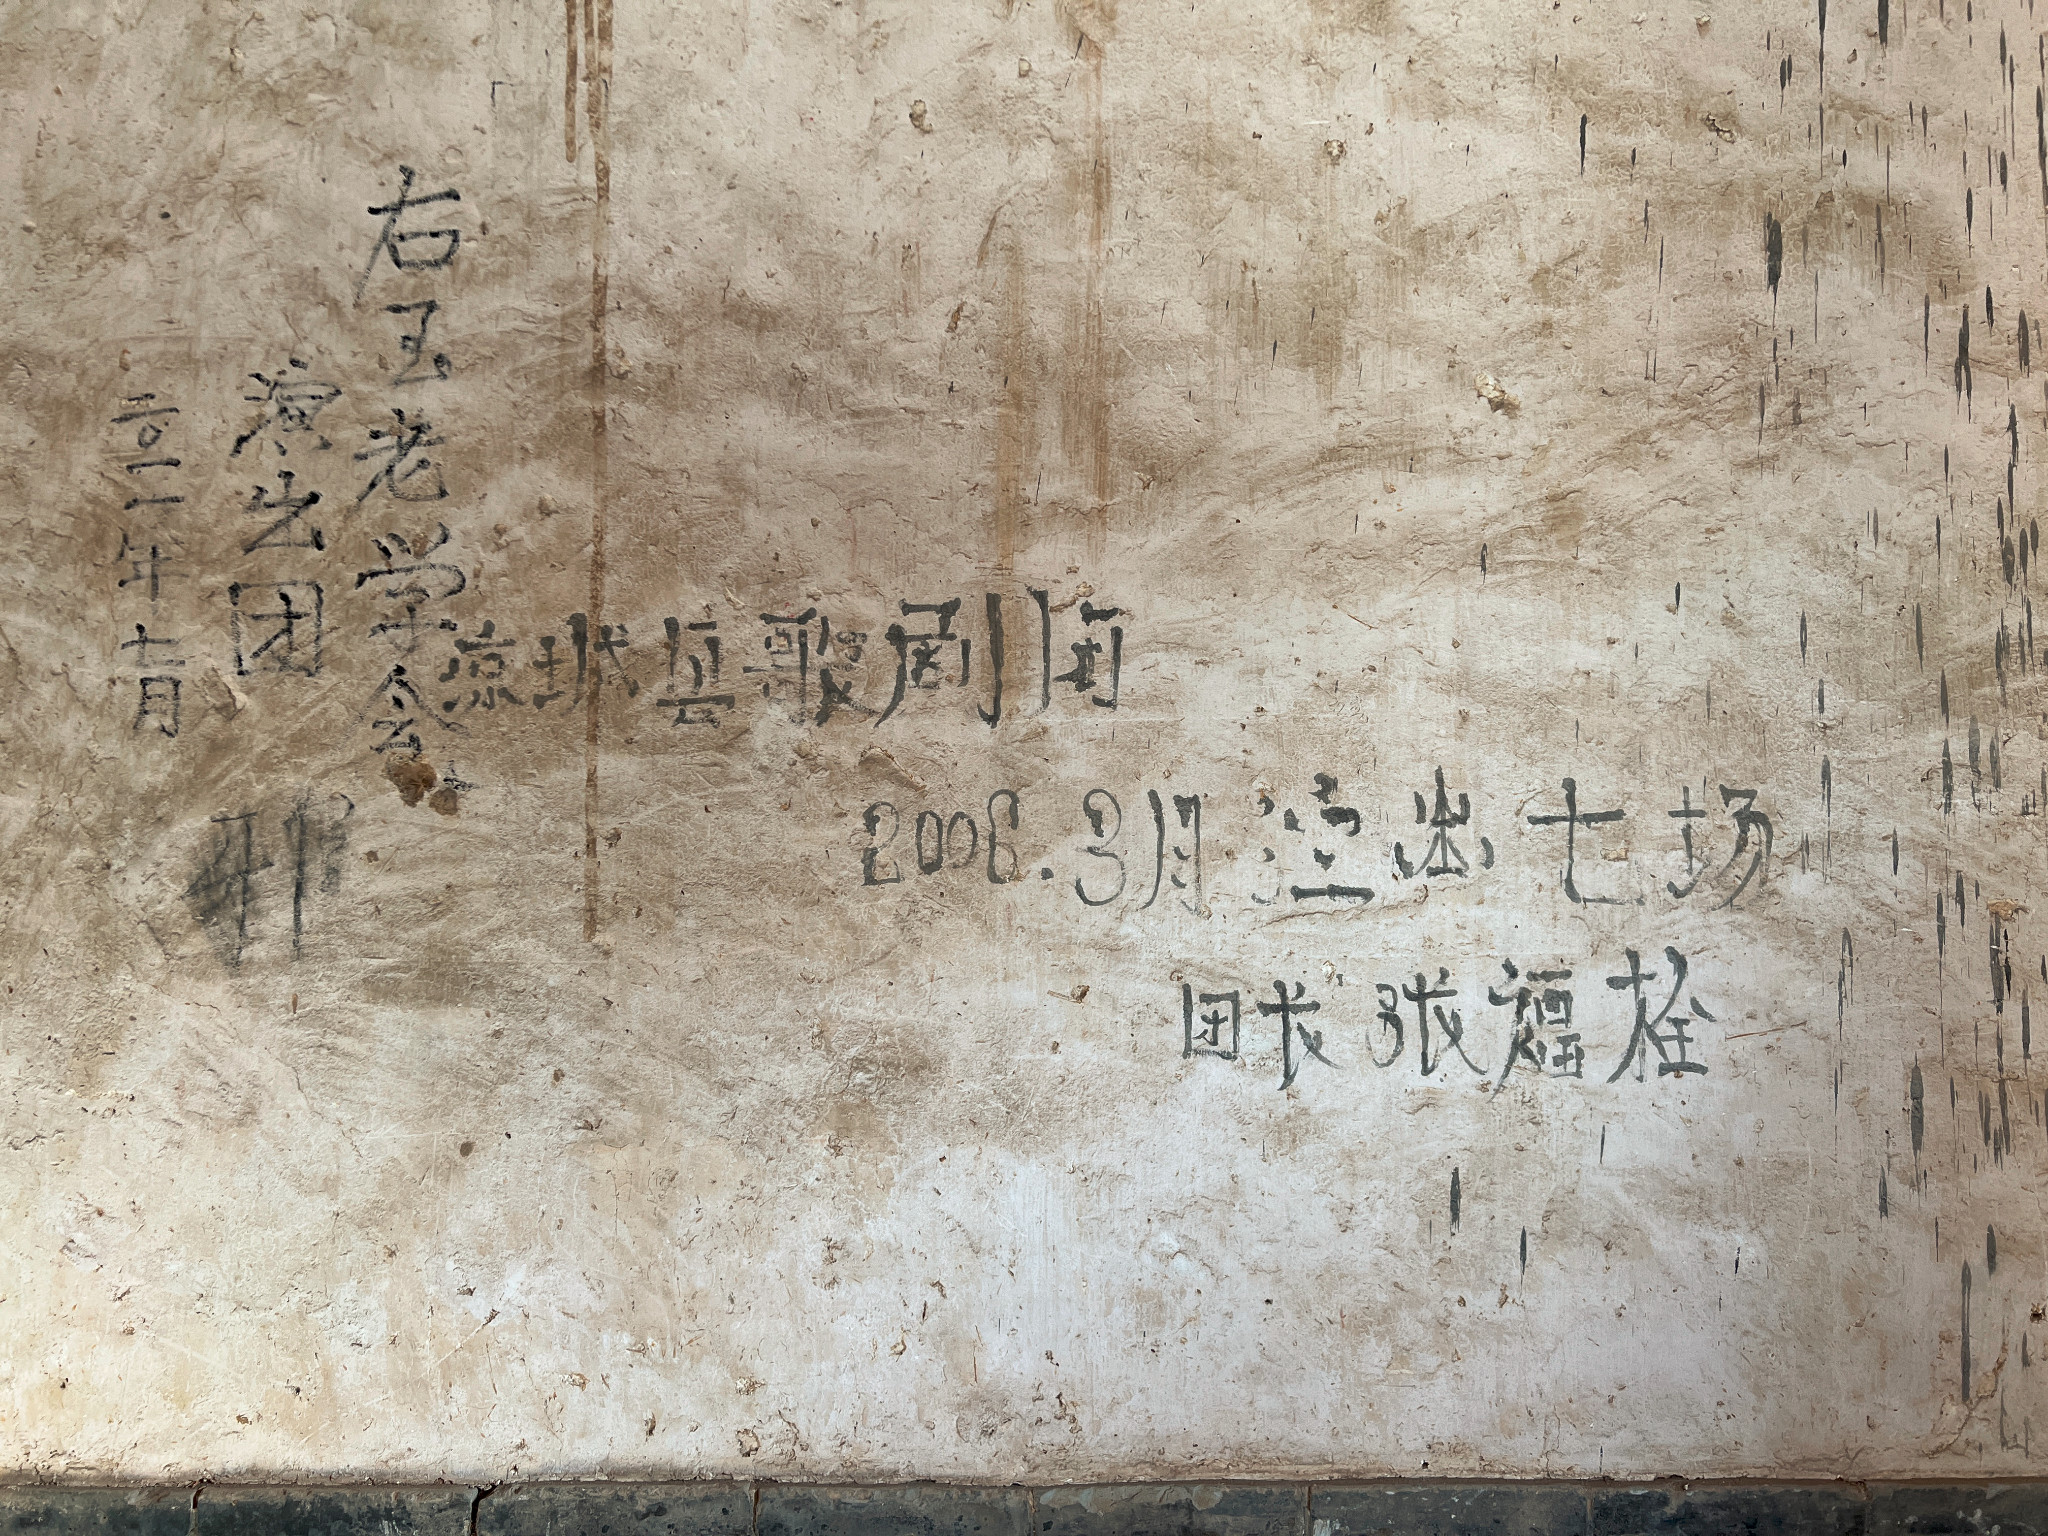 右玉老学会
演出团
二〇一一年七月
凉城县歌剧团
2006.3月演出七场
团长张福栓